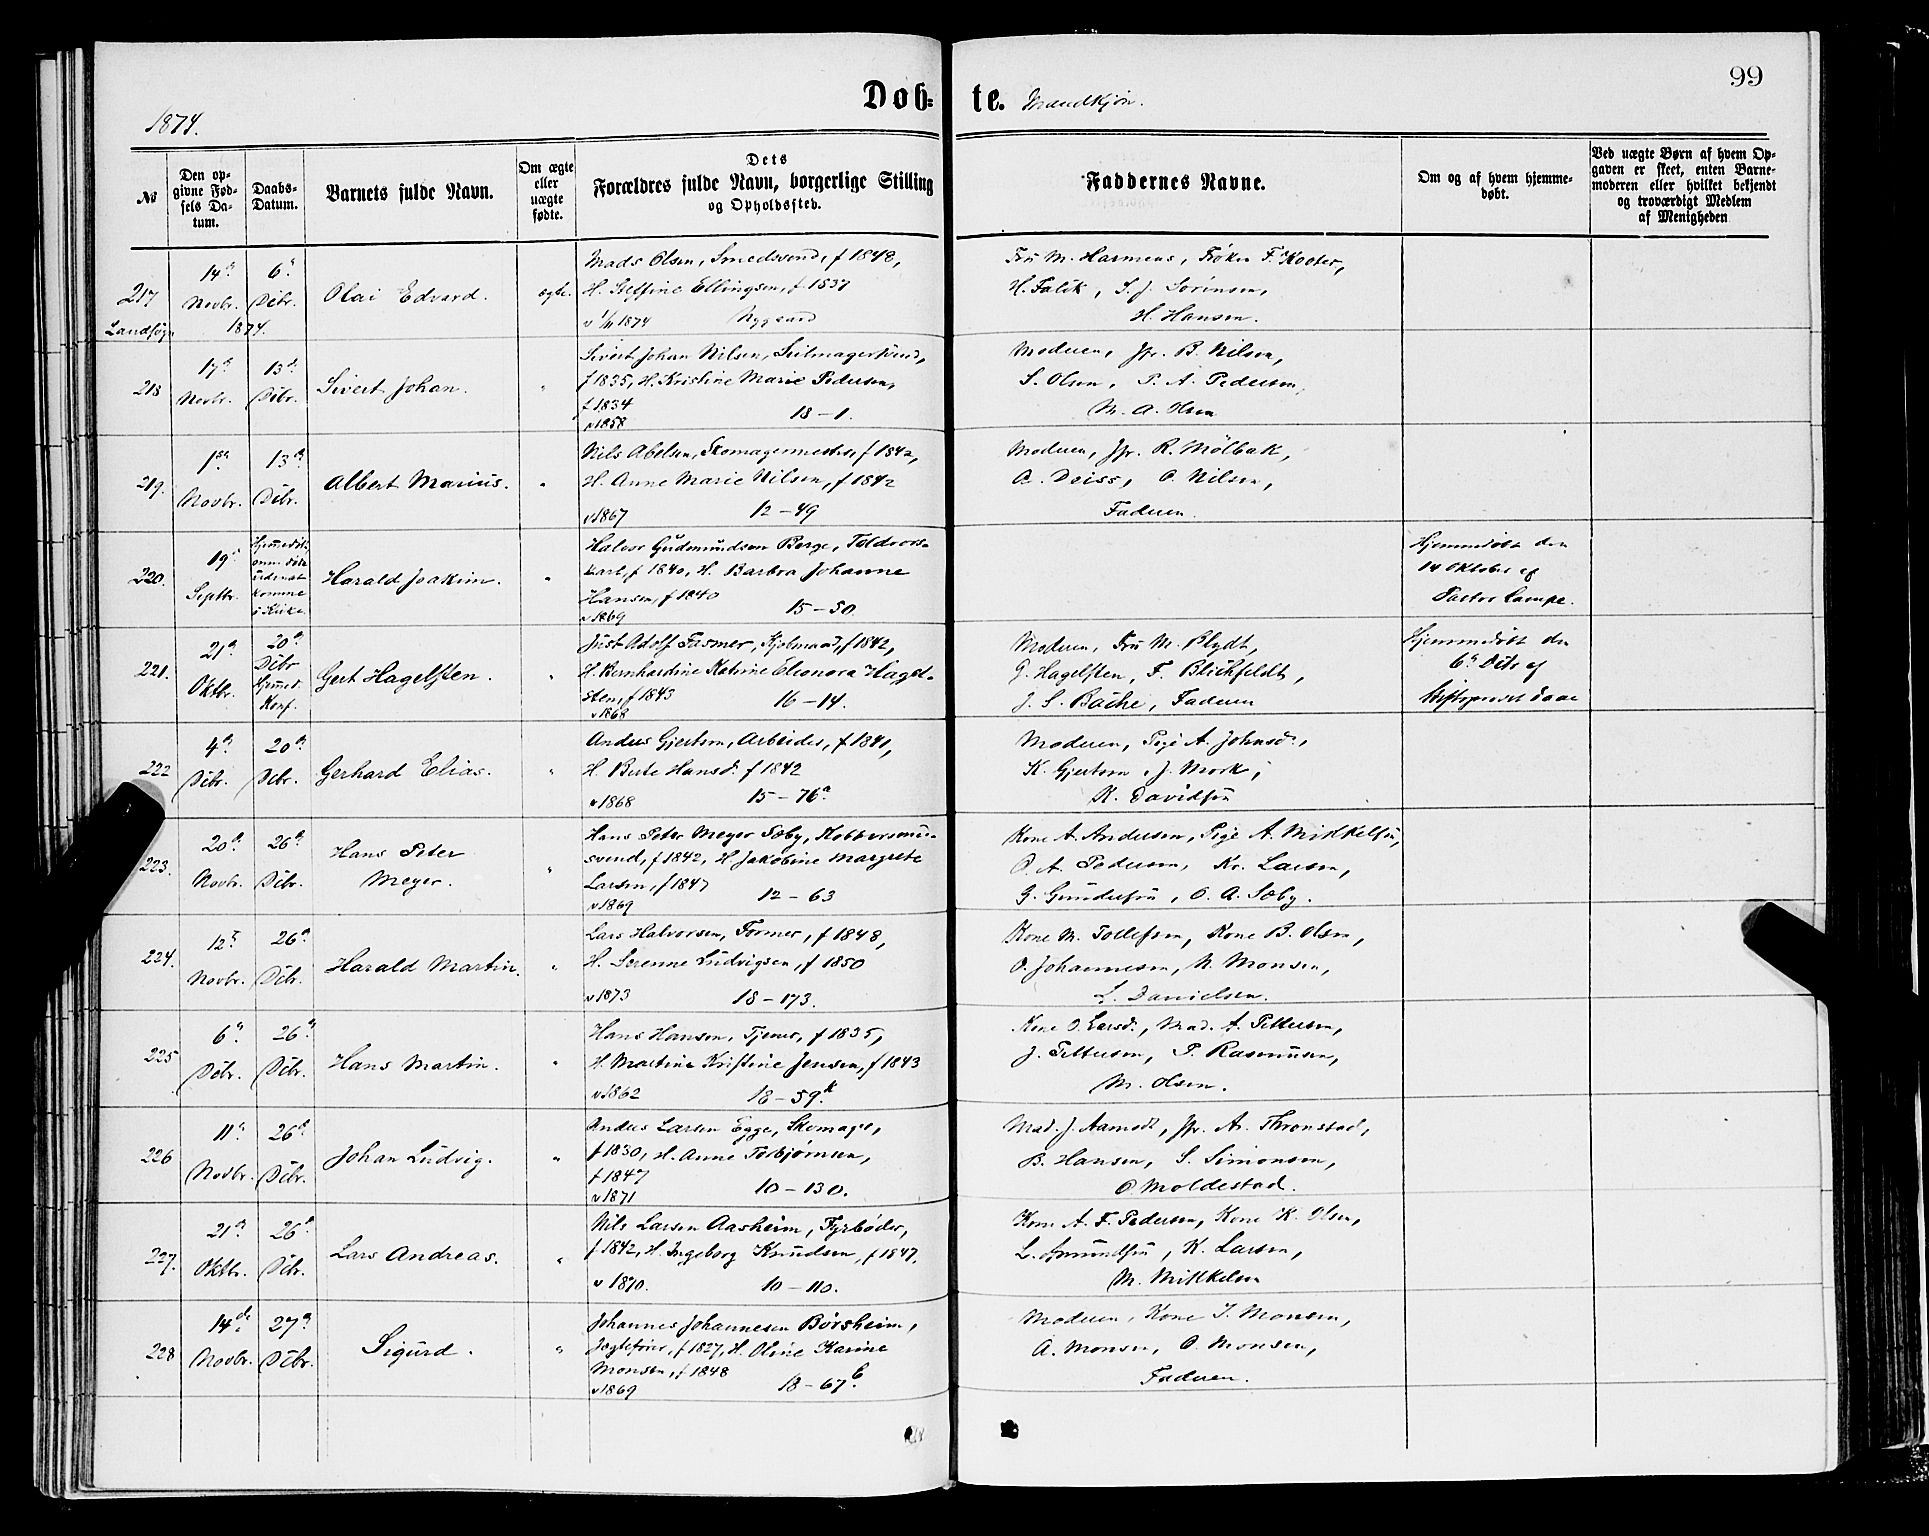 99
Døb- te. Mandkjøn.
1874.
No
Den opgivne Fødsels Datum.
Daabs-Datum.
Barnets fulde Navn.
Om ægte eller uægte fødte.
Dets Forældres fulde Navn, borgerlige Stilling og Opholdssted.
Faddernes Navne.
Om og af hvem hjemmedøbt.
Ved uægte Børn af hvem Opgaven er skeet, enten Barnemoderen eller hvilket bekjendt og troværdigt Medlem af Menigheden
217 Landsogn
14de Novbr. 1874.
6te Dcbr.
Olai Edvard.
ægte.
Mads Olsen, Smedsvend, f 1848,
H. Steffine Ellingsen, f 1837
v 1/11 1874 Nygaard
Fru M. Harmens, Frøken F. Kooter,
H. Falck, S. J. Sørensen,
H. Hansen.
218
17de Novbr.
13de Dcbr.
Sivert Johan.
"
Sivert Johan Nilsen, Seilmagersvend,
f 1835, H. Kristine Marie Pedersen,
f 1834
v 1858 18-1.
Moderen, Jfr. B. Nilsen,
S. Olsen, P. A. Pedersen,
M. A. Olsen
219.
1ste Novbr.
13de Dcbr.
Albert Marius.
"
Nils Abelsen, Skomagermester f 1842,
H. Anne Marie Nilsen, f 1842
v 1867 12-49
Moderen, Jfr. R. Mölbak,
A. Deiss, O. Nilsen,
Faderen.
220.
19de Septbr.
Hjemmedøbt komme i Kirke
Harald Joakim.
"
Halvor Gudmundsen Berge,
f 1840, H. Barbra Johanne
Hansen, f 1840
v 1869 15-50
Hjemmedøbt den
14 Oktober af
Pastor Lampe.
221.
21de Oktbr.
20de Dcbr Hjemmed. Konf.
Gert Hagelsten.
"
Just Adolf Fasmer, Kjøbmand, f 1842,
H. Bernhardine Katrine Eleonora Hagel-
sten, f 1843
v 1868 16-14.
Moderen, Fru M. Blydt,
G. Hagelsten, F. Blichfeldt,
J. S. Bache, Faderen
Hjemmedøbt den
6te Dcbr af
Stiftsprovst Daae
222
4de Dcbr.
20de Dcbr.
Gerhard Elias.
"
Anders Gjertsen, Arbeider, f 1841,
H. Berte Hansd. f 1842
v 1868 15-76a
Moderen, Pige A. Johnsd.,
K. Gjertsen, J. Mork,
K. Davidsen
223.
20de Novbr.
26de Dcbr.
Hans Peter
Meyer.
"
Hans Peter Meyer Søby,
svend, f 1842, H. Jakobine Margrete
Larsen, f 1847
v 1869 12-63
Kone A. Andersen, Pige A. Mikkelsen,
O. A. Pedersen, Kr. Larsen,
G. Gundersen, O. A. Søby.
224.
12te Novbr.
26de Dcbr.
Harald Martin.
"
Lars Halvorsen, Former, f 1848,
H. Serenne Ludvigsen, f 1850
v 1873 18-173.
Kone M. Tollefsen, Kone B. Olsen,
O. Johannesen, N. Monsen,
L. Danielsen.
225
6te Dcbr.
26de Dcbr.
Hans Martin.
"
Hans Hansen, Tjener, f 1835,
H. Martine Kristine Jensen, f 1843
v 1862 18-59k
Kone O. Larsd., Mad. A. Pettersen,
J. Pettersen, P. Rasmussen,
M. Olsen.
226
11te Novbr.
26de Dcbr.
Johan Ludvig.
"
Anders Larsen Egge, Skomager,
f 1830, H. Anne Torbjørnsen,
f 1847
v 1871 10-130.
Mad. J. Aamodt, Jfr. An. Thronstad,
B. Hansen, S. Simonsen,
O Moldestad.
227.
21de Oktbr.
26de Dcbr.
Lars Andreas.
"
Nils Larsen Aasheim, Fyrbøder,
f 1842, H. Ingeborg Knudsen, f 1847.
v 1870. 10-110.
Kone A. F. Pedersen, Kone K. Olsen,
L. Amundsen, K. Larsen,
M. Mikkelsen
228
14de Novbr.
27de Dcbr.
Sigurd.
"
Johannes Johannesen Børsheim,
Jægtefører, f 1827, H. Oline Karine
Monsen, f 1848
v 1869 18-67b
Moderen, Kone I. Monsen,
A. Monsen, O. Monsen,
Faderen.